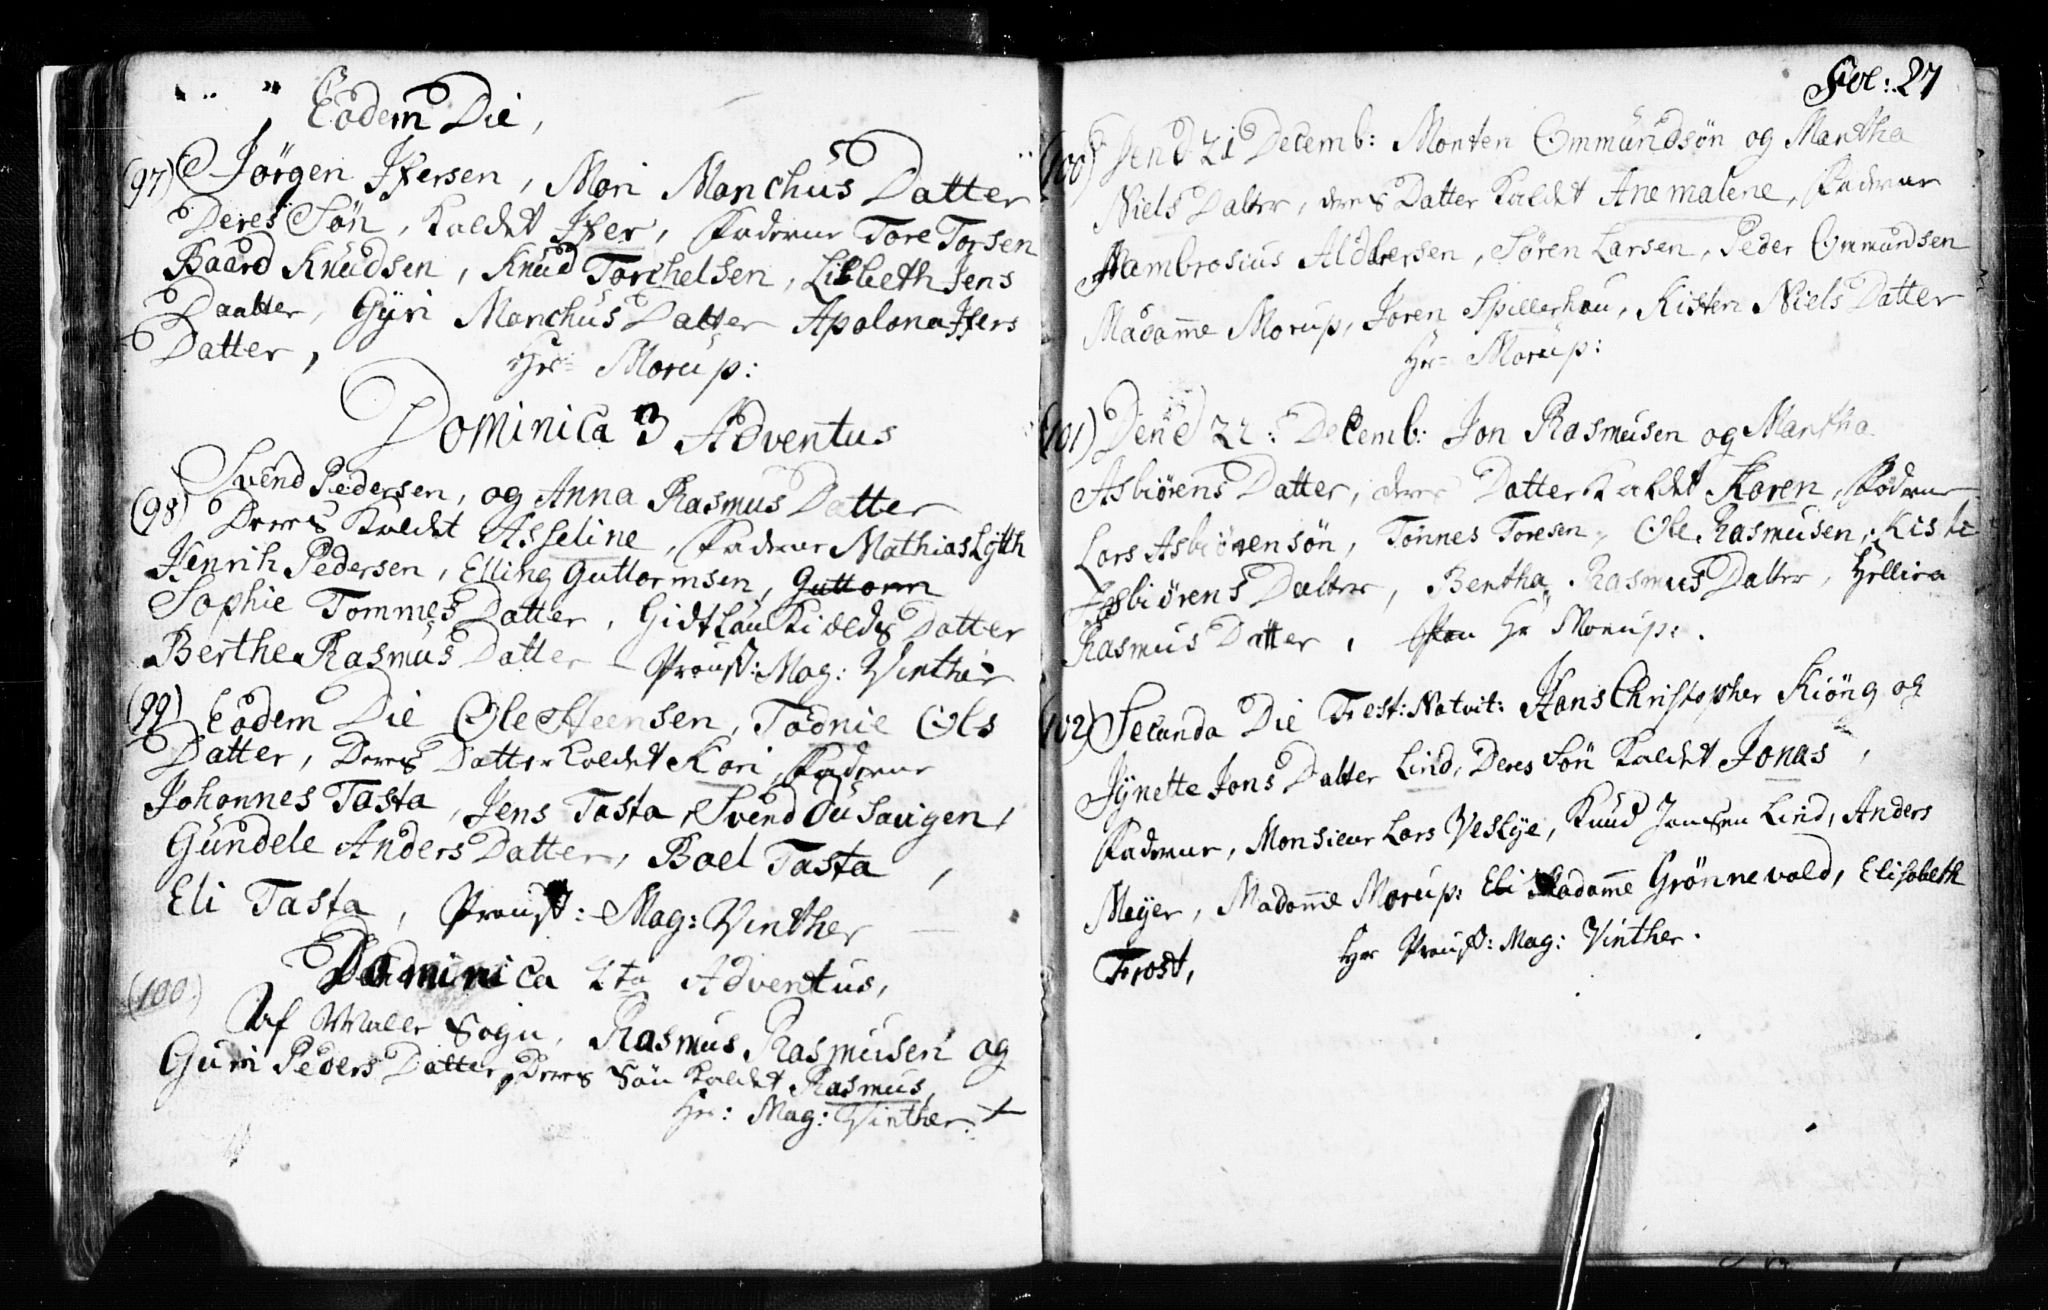 Eodem Die,
(97) Jørgen Ifersen, Mari Marchus Datter
Deres Søn, kaldet Ifer, Fadderne Tore Torsen
Baard Knudsen, Knud Torchelsen, Lisbeth Jens
Daatter, Gyri Marchus Datter Apolona Ifers
Datter,
Hr: Morup:
Dominica 3 Adventus
Svend Pedersen, og Anna Rasmus Datter
(98) Deres kaldet Asseline, Fadderne Mathias Lytth
Henrik Pedersen, Elling Guttormsen, Guttorm
Sophie Tommes Datter, Gidtlau Kields Datter
Berthe Rasmus Datter Proust: Mag: Vinther
(99) Eodem Die Ole Steensen, Todnie Ols
Datter, Deres Datter kaldet Kari, Fadderne
Johannes Tasta, Jens Tasta, Svend Dusavigen,
Gundele Anders Datter, Boel Tasta,
Eli Tasta, Proust: Mag: Vinther
Dominica 4ta Adventus,
(100) Af Malle Sogn, Rasmus Rasmusen og
Guri Peders Datter, Deres Søn kaldet Rasmus,
Hr: Mag: Vinther.
Fol: 27
(100) Dend 21 Decemb: Morten Ommundsøn og Martha
Niels Datter, deres Datter kaldet Anemalene, Fadderne
Hambrosius Aldbersen, Søren Larsen, Peder Ommundsen
Madame Morup, Joren Spillerhau, Kisten Niels Datter
Hr: Morup:
(101) Dend 22: Decemb: Jon Rasmusen og Martha
Asbiørens Datter, deres Datter kaldet Karen, Fadderne
Lars Asbiørensøn, Tønnes Toresen, Ole Rasmusen, Kisti
Asbiørens Datter, Bertha Rasmus Datter, Hellica
Rasmus Datter, Hr Morup:.
(102) Secunda Die Fest: Natvit: Hans Christopher Kiøng og
Jynette Jons Datter Lind, Deres Søn kaldet Jonas,
Fadderne, Monsieur Lars Veslye, Knud Jansen Lind, Anders
Meyer, Madame Morup: Eli Madame Grønnevald, Elisabeth
Frost,
Hr Proust: Mag: Vinther.